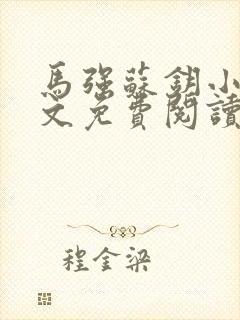 馬強蘇鈅小
文免費閱讀
程金梁